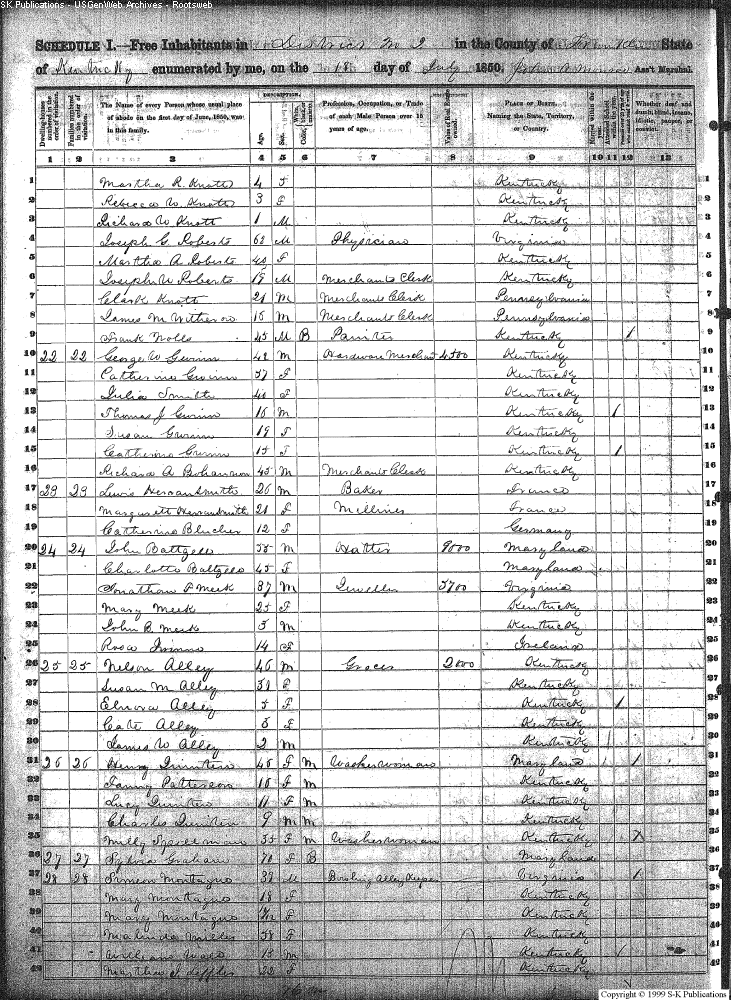 S-K Publications - USGenWeb Archives - Rootsweb
SCHEDULE I.—Free Inhabitants in District No 2 in the County of Franklin State
of Kentucky enumerated by me, on the 18 day of July 1850. Ass't Marshal.
Dwelling-houses numbered in the order of visitation.
Families numbered in the order of visitation.
The Name of every Person whose usual place of abode on the first day of June, 1850, was in this family.
DESCRIPTION.
Age.
Sex.
Color
Profession, Occupation, or Trade of each Male Person over 15 years of age.
Value of Real Estate owned.
PLACE OF BIRTH. Naming the State, Territory, or Country.
Married within the year.
Attended School within the year.
Whether deaf and dumb, blind, insane, idiotic, pauper, or convict.
1 2 3 4 5 6 7 8 9 10 11 12 13
1 Martha R. Knott 4 F Kentucky 1
2 Rebecca W. Knott 3 F Kentucky 2
3 Richard W Knott 1 M Kentucky 3
4 Joseph G. Roberts 62 M Physician Virginia 4
5 Martha A Roberts 40 F Kentucky 5
6 Joseph Roberts 19 M Merchants Clerk Kentucky 6
7 Clark Knott 21 M Merchants Clerk Pennsylvania 7
8 James M Witherow 15 M Merchants Clerk Pennsylvania 8
9 Frank 45 M B Painter Kentucky / 9
10 22 22 George W Gwinn 42 M Hardware Merchant 4500 Kentucky 10
11 Catherine Gwinn 37 F Kentucky 11
12 Julia Smith 40 F Kentucky 12
13 Thomas J Gwinn 16 M Kentucky / 13
14 Susan Gwinn 19 F Kentucky 14
15 Catherine Gwinn 15 F Kentucky / 15
16 Richard A Bohannon 45 M Merchants Clerk Kentucky 16
17 23 23 Lewis 26 M Baker France 17
18 Margarett 21 F Milliner France 18
19 Catherine Blucher 12 F Germany 19
20 24 24 John Baltzell 55 M Hatter 9000 Maryland 20
21 Charlotte Baltzell 45 F Maryland 21
22 Jonathan F Meek 37 M Jeweller 5700 Virginia 22
23 Mary Meek 25 F Kentucky 23
24 John B. Meek 5 M Kentucky 24
25 Rosa 14 F Ireland 25
26 25 25 Nelson Alley 46 M Grocer 2000 Kentucky 26
27 Susan M Alley 31 F Kentucky 27
28 Elnora Alley 5 F Kentucky / 28
29 Cate Alley 3 F Kentucky 29
30 James W Alley 2 M Kentucky 30
31 26 26 46 F M Washerwoman Maryland / 31
32 Fanny Patterson 16 F M Kentucky 32
33 Lucy 11 F M Kentucky 33
34 Charles 9 M M Kentucky 34
35 Milly Spearman 35 F M Washerwoman Kentucky 35
36 27 27 Sylvia Graham 70 F B Maryland 36
37 28 28 Simeon Montague 38 M Bowling Alley Keeper Virginia / 37
38 Mary Montague 18 F Kentucky 38
39 Mary Montague F Kentucky 39
40 Malinda 38 F Kentucky 40
41 William 13 M Kentucky / 41
42 Martha 22 F Kentucky 42
Copyright © 1999 S-K Publications